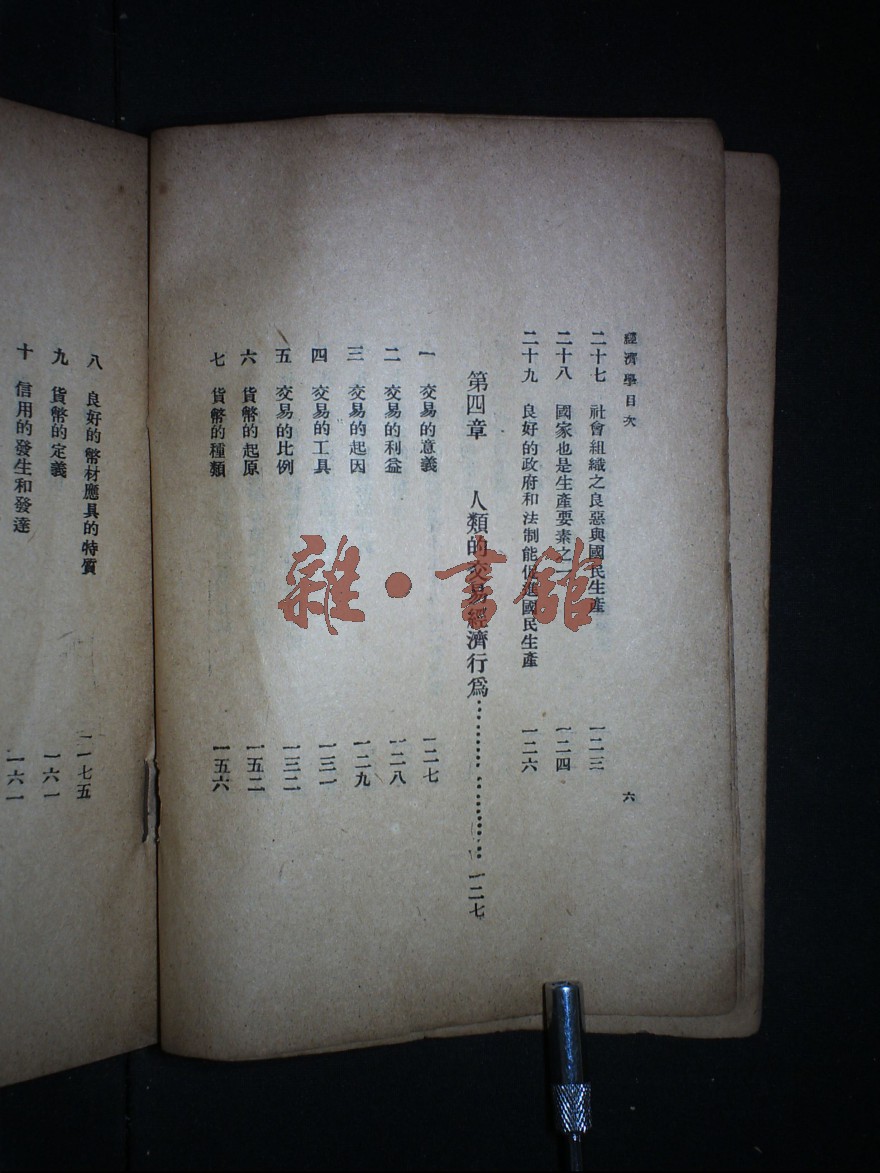 經濟學目次
六
二十七 社會組織之良惡與國民生產 一二三
二十八 國家也是生產要素之一 一二四
二十九 良好的政府和法制能促進國民生產 一二六
第四章 人類的交易經濟行爲………………… 一二七
一 交易的意義 一二七
二 交易的利益 一二八
三 交易的起因 一二九
四 交易的工具 一三一
五 交易的比例 一三二
六 貨幣的起原 一五二
七 貨幣的種類 一五六
八 良好的幣材應具的特質
九 貨幣的定義 一六一
十 信用的發生和發達 一六一
雜·書舘